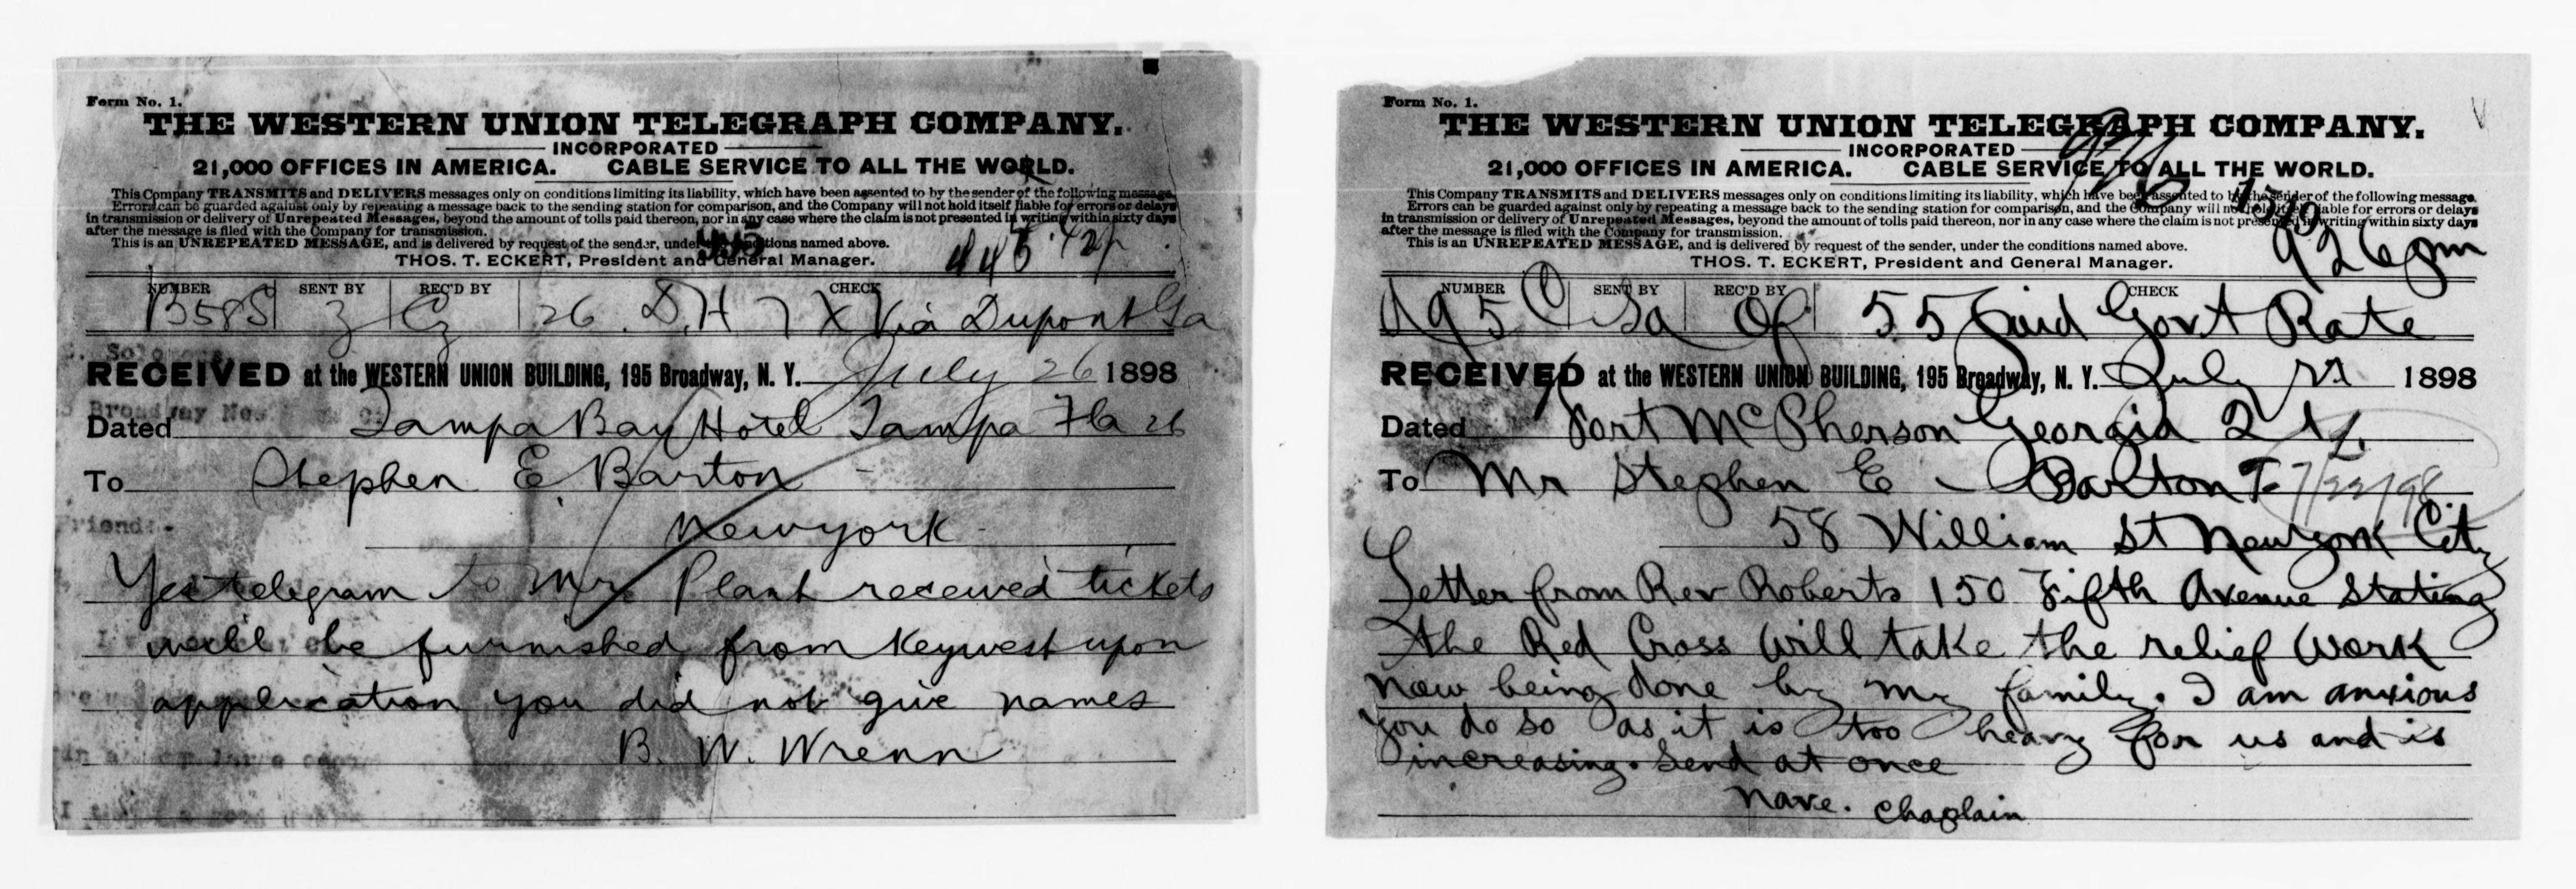 Form No. 1.
THE WESTERN UNION TELEGRAPH COMPANY.
INCORPORATED
21,000 OFFICES IN AMERICA. CABLE SERVICE TO ALL THE WORLD.
This Company TRANSMITS and DELIVERS messages only on conditions limiting its liability, which have been assented to by the sender of the following message.
Errors can be guarded against only by repeating a message back to the sending station for comparison, and the Company will not hold itself liable for errors or delays
in transmission or delivery of Unrepeated Messages, beyond the amount of tolls paid thereon, nor in any case where the claim is not presented in writing within sixty days
after the message is filed with the Company for transmission.
This is an UNREPEATED MESSAGE, and is delivered by request of the sender, under the conditions named above.
THOS. T. ECKERT, President and General Manager.
NUMBER SENT BY REC'D BY CHECK
26 D.H Via Dupont Ga
RECEIVED at the WESTERN UNION BUILDING, 195 Broadway, N. Y. July 26 1898
Dated Tampa Bay Hotel Tampa Fla 26
To Stephen E. Barton
Newyork
Yes telegram to Mr. Plant received tickets
will be furnished from Keywest upon
application you did not give names
B. W. Wrenn
Form No. 1.
THE WESTERN UNION TELEGRAPH COMPANY.
INCORPORATED
21,000 OFFICES IN AMERICA. CABLE SERVICE TO ALL THE WORLD.
This Company TRANSMITS and DELIVERS messages only on conditions limiting its liability, which have been assented to by the sender of the following message.
Errors can be guarded against only by repeating a message back to the sending station for comparison, and the Company will not hold itself liable for errors or delays
in transmission or delivery of Unrepeated Messages, beyond the amount of tolls paid thereon, nor in any case where the claim is not presented in writing within sixty days
after the message is filed with the Company for transmission.
This is an UNREPEATED MESSAGE, and is delivered by request of the sender, under the conditions named above.
THOS. T. ECKERT, President and General Manager.
926 pm
NUMBER SENT BY REC'D BY CHECK
55 Paid Govt Rate
RECEIVED at the WESTERN UNION BUILDING, 195 Broadway, N. Y. July 1898
Dated Fort McPherson Georgia 21
To Mr Stephen E Barton 7/22/98
58 William St Newyork City
Letter from Rev Roberts 150 Fifth Avenue Stating
the Red Cross will take the relief work
now being done by my family. I am anxious
you do so as it is too heavy for us and is
increasing. Send at once
Nave. Chaplain